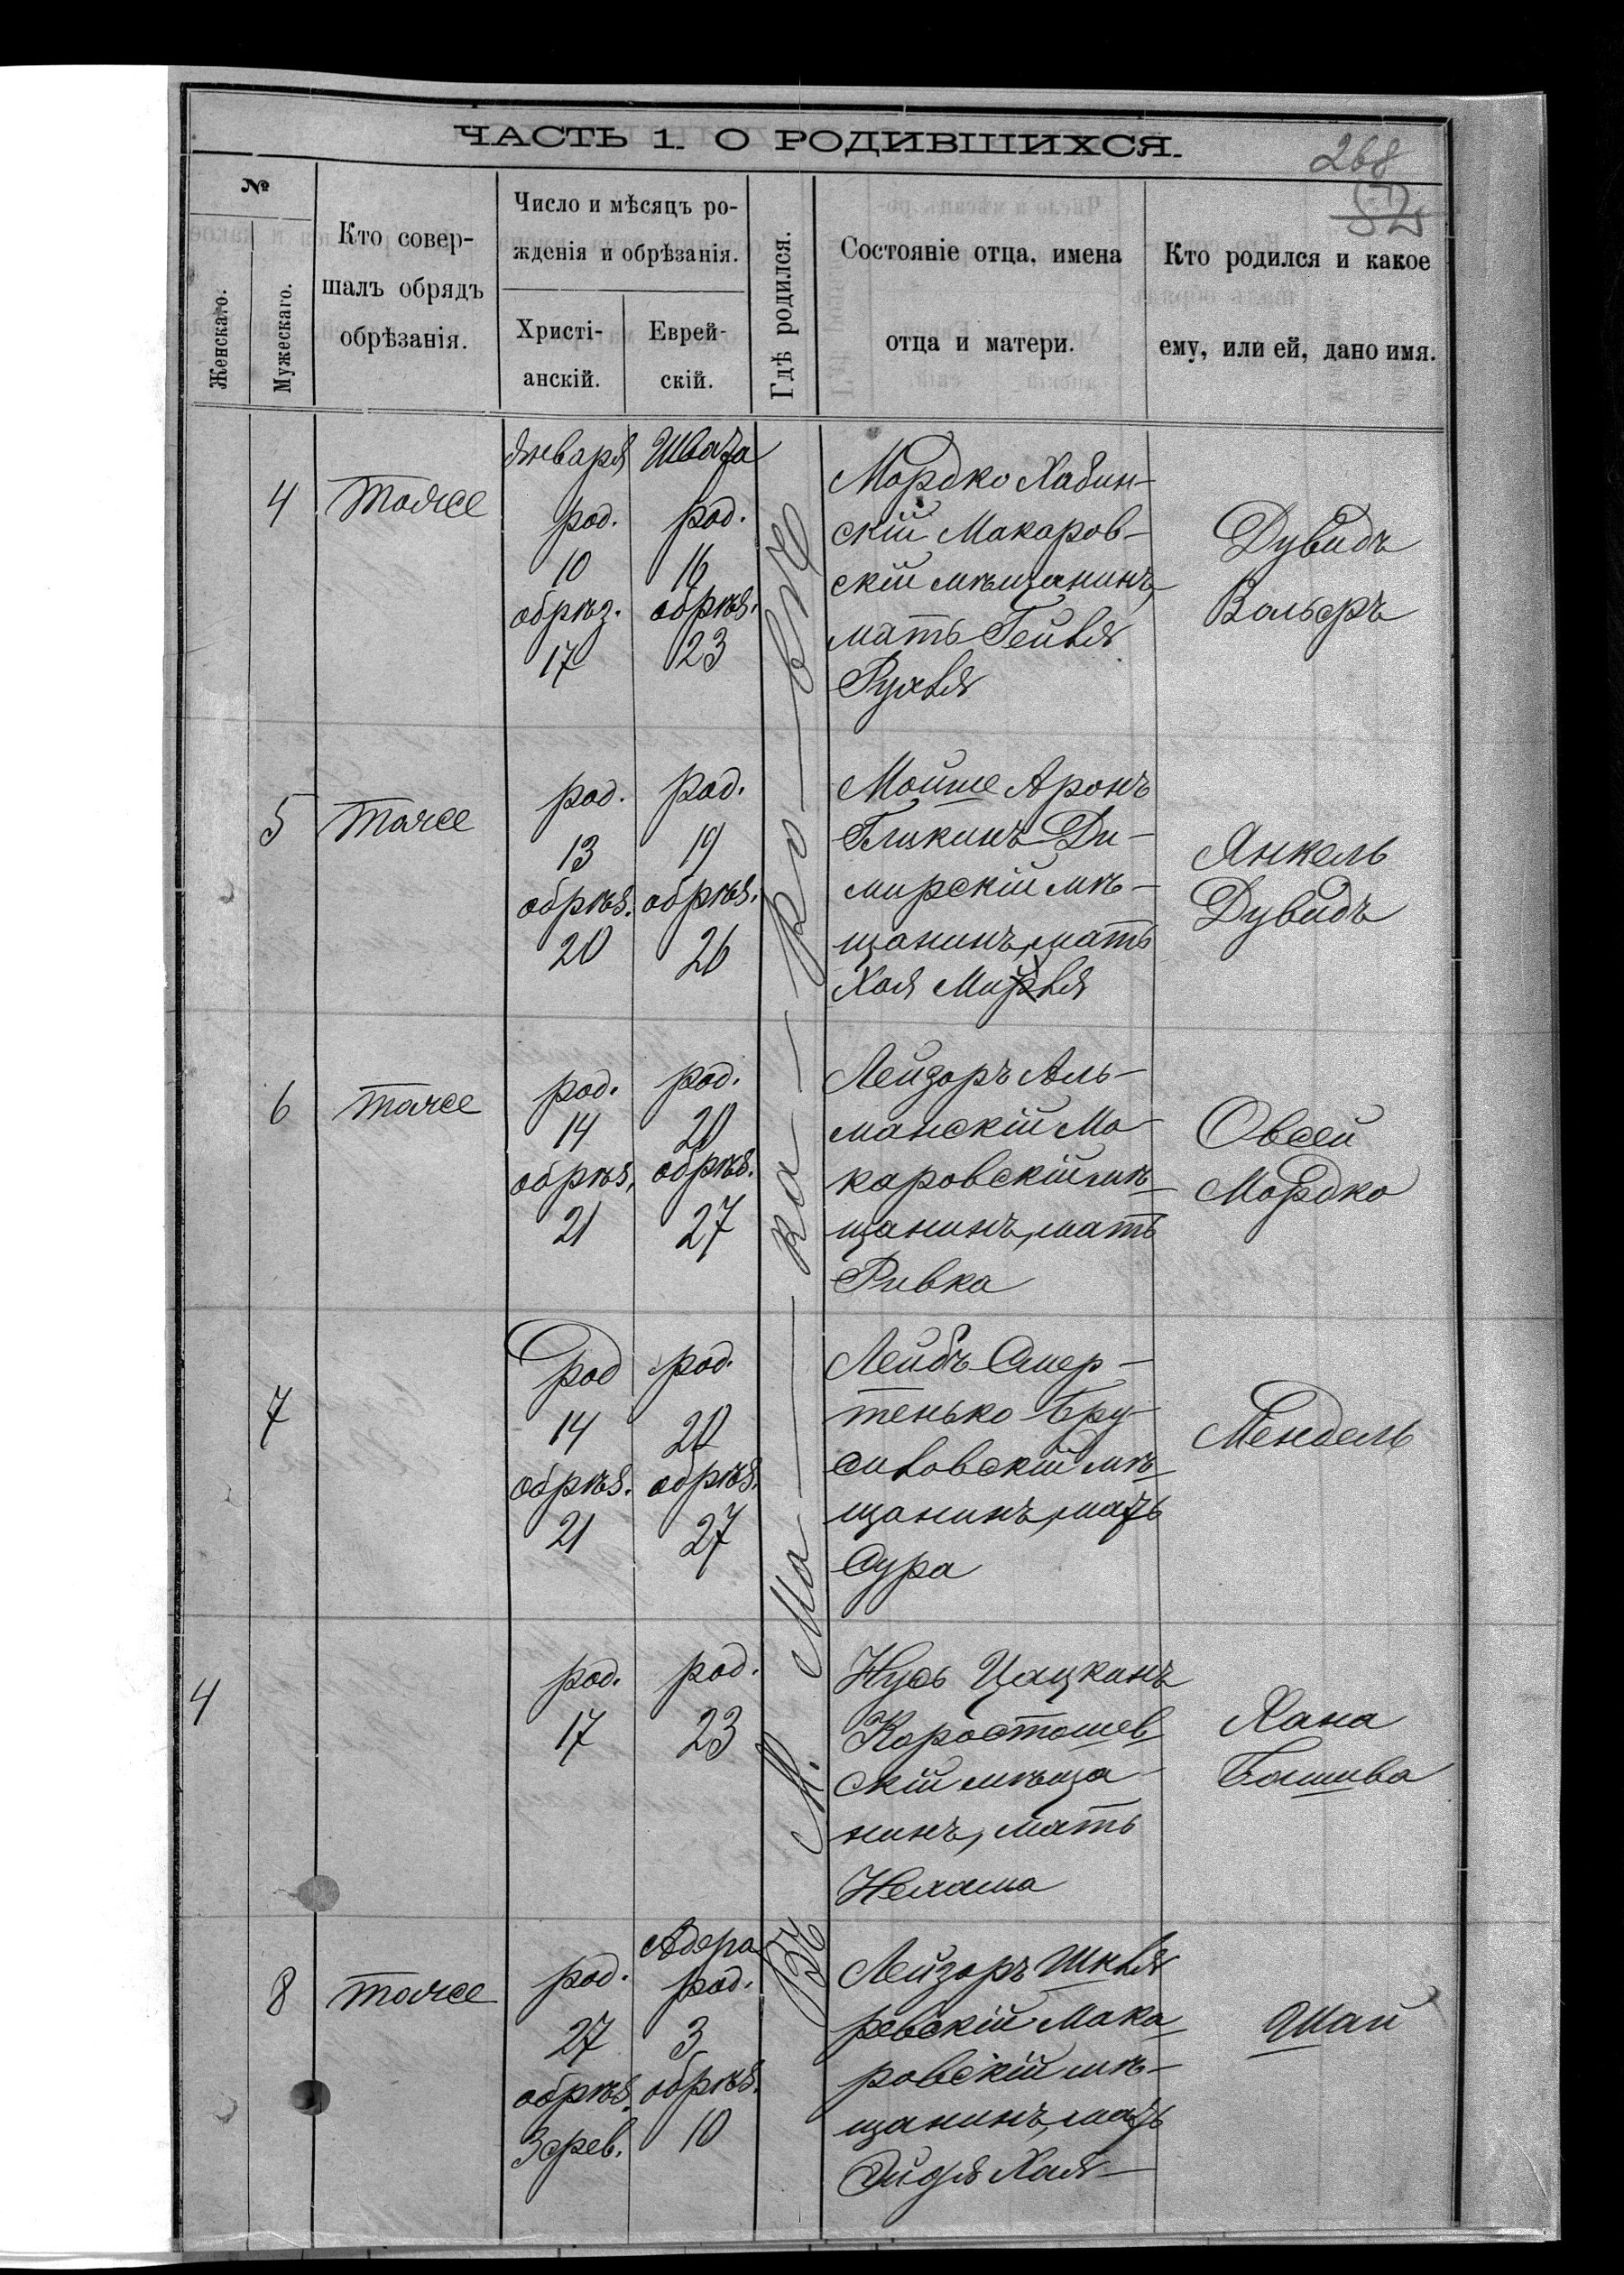 ЧАСТЬ 1. О РОДИВШИХСЯ.
268
52
№
Женскаго.
Мужескаго.
Кто совер-
шалъ обрядъ
обрѣзанія.
Число и мѣсяцъ ро-
жденія и обрѣзанія.
Христі-
анскій.
Еврей-
скій.
Гдѣ родился.
Состояніе отца, имена
отца и матери.
Кто родился и какое
ему, или ей, дано имя.
Въ М. Ма-ка-ро-вѣ
4
Тоже
Января
род.
10
обрѣз.
17
Швата
род.
16
обрѣз.
23
Мордко Хабин-
скій Макаров-
скій мѣщанинъ,
мать Гейня
Рухля
Дувидъ
Вольфъ
5
Тоже
род.
13
обрѣз.
20
род.
19
обрѣз.
26
Мойше Аронъ
Гликинъ Ди-
мирскій мѣ-
щанинъ, мать
Хая
Янкель
Дувидъ
6
тоже
род.
14
обрѣз.
21
род.
20
обрѣз.
27
Лейзоръ Аль-
манскій Ма-
каровскій мѣ-
щанинъ, мать
Ривка
Овсей
Мордко
7
род
14
обрѣз.
21
род.
20
обрѣз.
27
Лейбъ Смер-
тенько Бру-
силовскій мѣ-
щанинъ, мать
Сура
Мендель
4
род.
17
род.
23
Нусь Цацкинъ
Коростошев
скій мѣща-
нинъ, мать
Нехама
Хана
Башива
8
тоже
род.
27
обрѣз.
3 фев.
Адера
род.
3
обрѣз.
10
Лейзоръ Шкля
ревскій Мака
ровскій мѣ-
щанинъ, мать
Хая
Шай